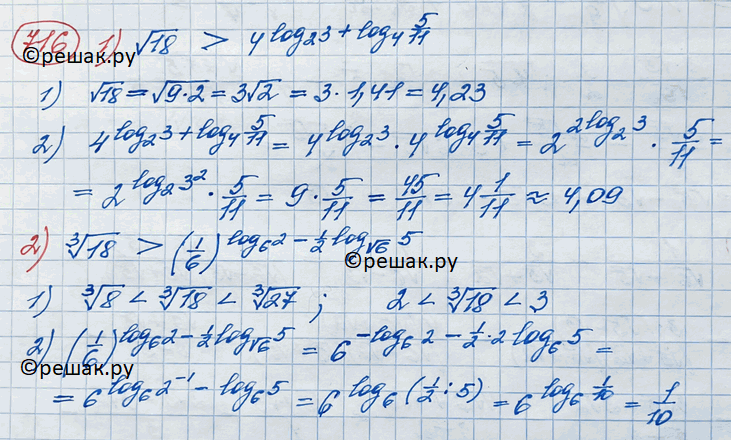 716 1) √18 > 4^(log₂3 + log₄ 5/11)
©решак.ру ©решак.ру
1) √18 = √(9·2) = 3√2 = 3·1,41 = 4,23
2) 4^(log₂3 + log₄ 5/11) = 4^(log₂3) · 4^(log₄ 5/11) = 2^(2log₂3) · 5/11 =
= 2^(log₂3²) · 5/11 = 9 · 5/11 = 45/11 = 4 1/11 ≈ 4,09
2) ∛18 > (1/6)^(log₆2 − ½log_√6 5)
©решак.ру
1) ∛8 < ∛18 < ∛27 ; 2 < ∛18 < 3
2) (1/6)^(log₆2 − ½log_√6 5) = 6^(−log₆2 − ½·2log₆5) =
©решак.ру
= 6^(log₆2⁻¹ − log₆5) = 6^(log₆(½:5)) = 6^(log₆ 1/10) = 1/10